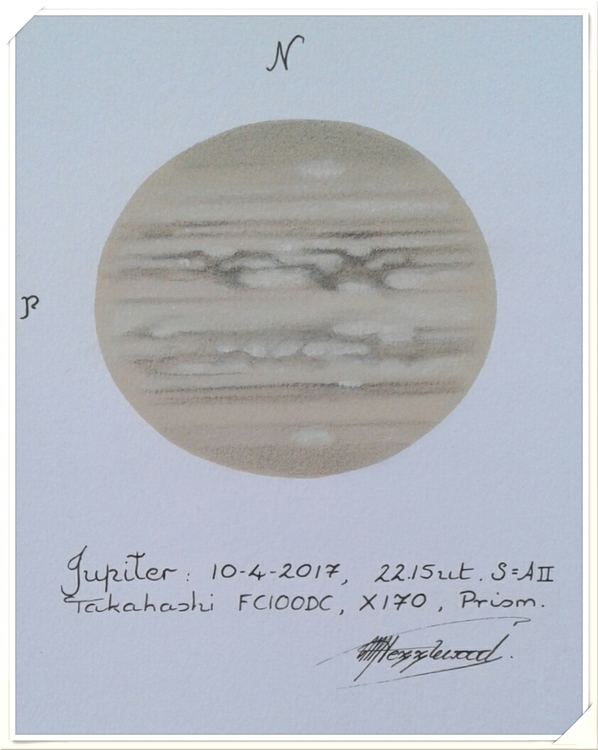 N
P
Jupiter: 10-4-2017, 22.15ut. S=AII
Takahashi FC100DC, X170, Prism.